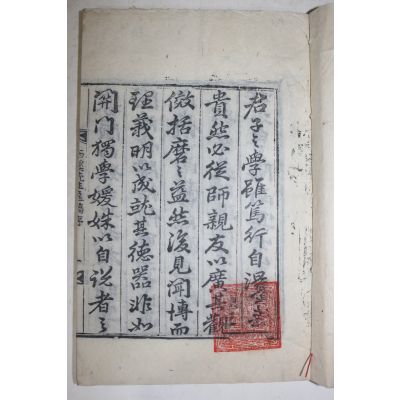 君子之學雖篤行自
貴然必從師親友以廣其觀
倣括磨之益然後見聞博而
理義明以成就其德器非如
閉門獨學媛姝以自說者之
先生遺稿序